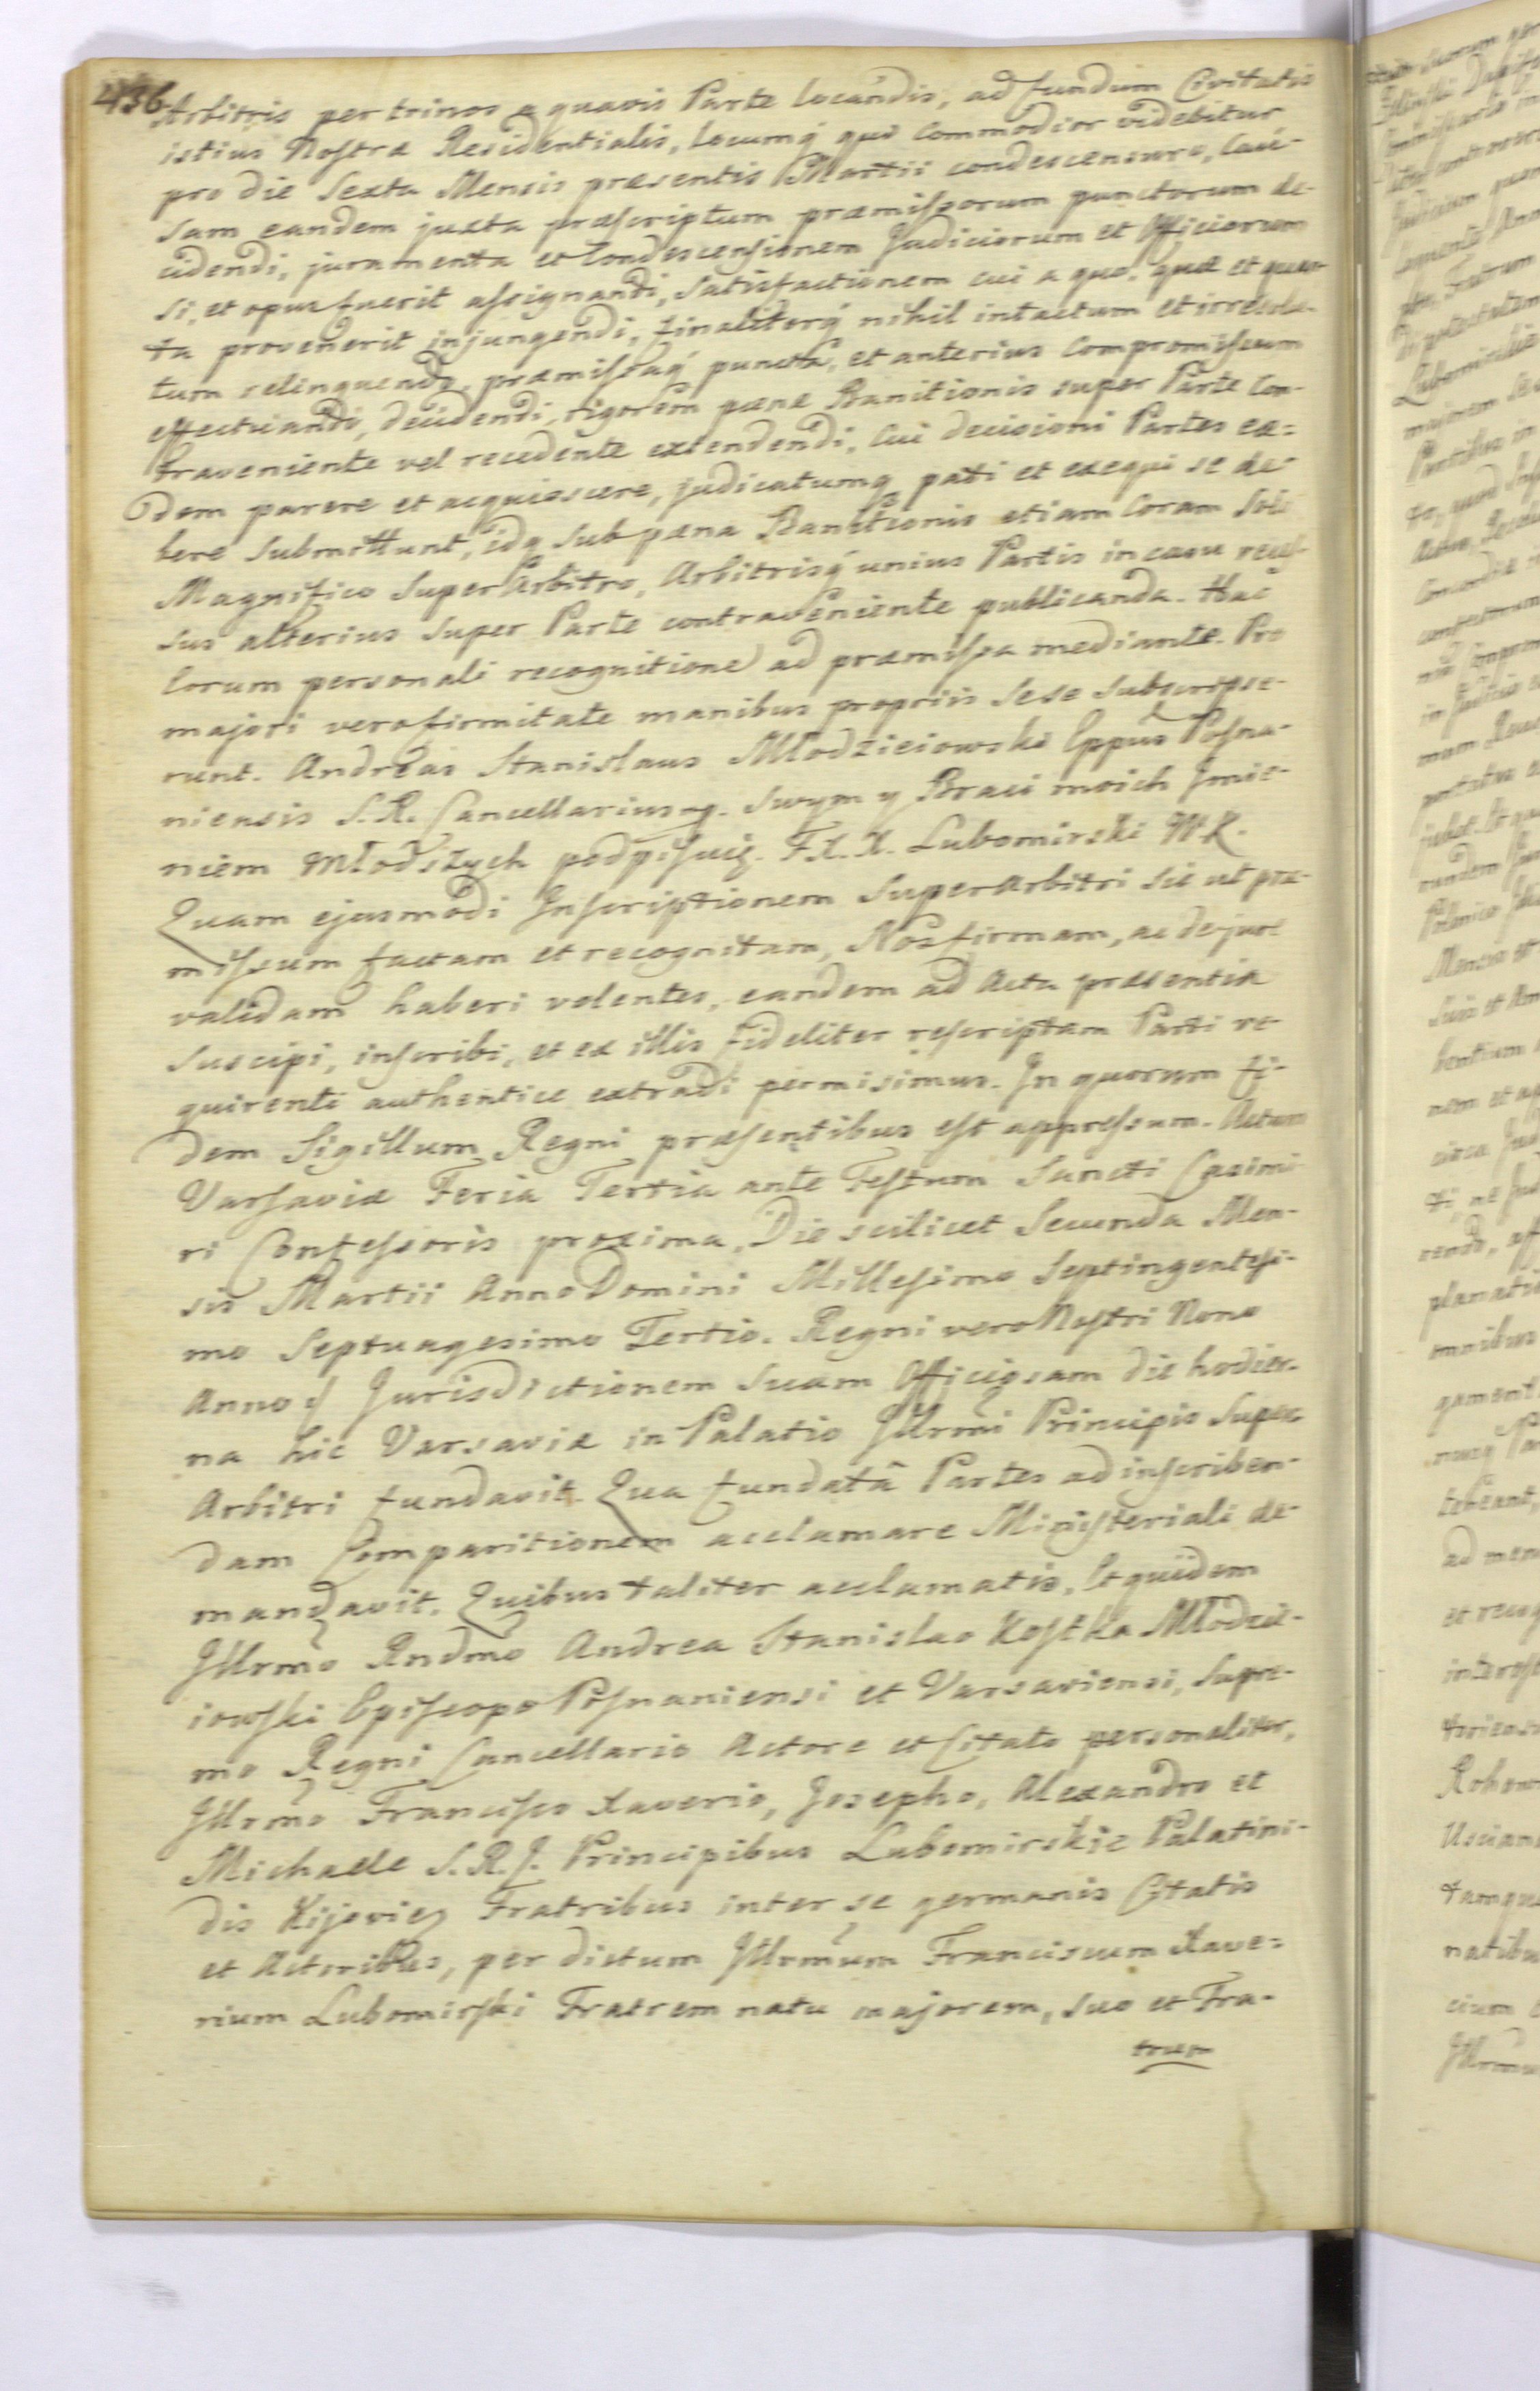 436.
Arbitris per trinos a quavis Parte locandis, ad fundum Civitatis
istius Nostræ Residentialis, locumq́ quo Commodior videbitur
pro die Sexta Mensis præsentis Martii condescensuro, Cau-
sam eandem juxta præscriptum præmissorum punctorum de-
cidendi, juramenta et Condescensionem Judiciorum et Officiorum
si, et opus fuerit assignandi, Satisfactionem cui a quo, quæ et quan-
ta provenerit injungendi, finaliterq́ nihil intactum et irresolu-
tum relinquendo, præmissaq́ puncta, et anterius Compromissum
effectuandi, decidendi, rigorem pænæ Banitionis super Parte Con-
traveniente vel recedente extendendi, Cui decisioni Partes ea=
dem parere et acquiescere, judicatumq́ pati et exequi se de-
bere Submittunt, idq́ sub pæna Banitionis etiam Coram Solo
Magnifico SuperArbitro, Arbitrisq́ unius Partis in casu reces-
sus alterius super Parte contraveniente publicanda. Hac
Eorum personali recognitione ad præmissa mediante. Pro
majori vero firmitate manibus propriis sese subscripse-
runt. Andreas Stanislaus Młodzieiowski Eppus Posna-
niensis S. R. Cancellarius. Swym y Braci moich Jmie-
niem Młodszych podpisuię. F. X. X. Lubomirski MP.
Quam ejusmodi Inscriptionem SuperArbitri sic ut præ-
missum factam et recognitam, Nos firmam, ac de jure
validam haberi volentes, eandem ad Acta præsentia
suscipi, inscribi, et ex illis fideliter rescriptam Parti re-
quirenti authentice extradi permisimus. In quorum fi-
dem Sigillum Regni præsentibus est appressum. Actum
Varsaviæ Feria Tertia ante Festum Sancti Casimi-
ri Confessoris proxima, Die scilicet Secunda Men-
sis Martii Anno Domini Millesimo Septingentesi-
mo Septuagesimo Tertio. Regni vero Nostri Nono
Anno // Jurisdictionem Suam Officiosam die hodier-
na hic Varsaviæ in Palatio Illrmi Principis Super
Arbitri fundavit. Qua fundatâ Partes ad inscriben-
dam Comparitionem acclamare Ministeriali de-
mandavit. Quibus taliter acclamatis, Et quidem
Illrmo Rndmo Andrea Stanislao Kostka Młodzie-
iowski Episcopo Posnaniensi et Varsaviensi, Supre-
mo Regni Cancellario Actore et Citato personaliter,
Illrmo Francisco Xaverio, Josepho, Alexandro et
Michaele S. R. J. Principibus Lubomirskie Palatini-
dis Kijoviæ Fratribus inter se germanis Citatis
et Actoribus, per dictum Illrmum Franciscum Xave=
rium Lubomirski Fratrem natu majorem, suo et Fra-
trum